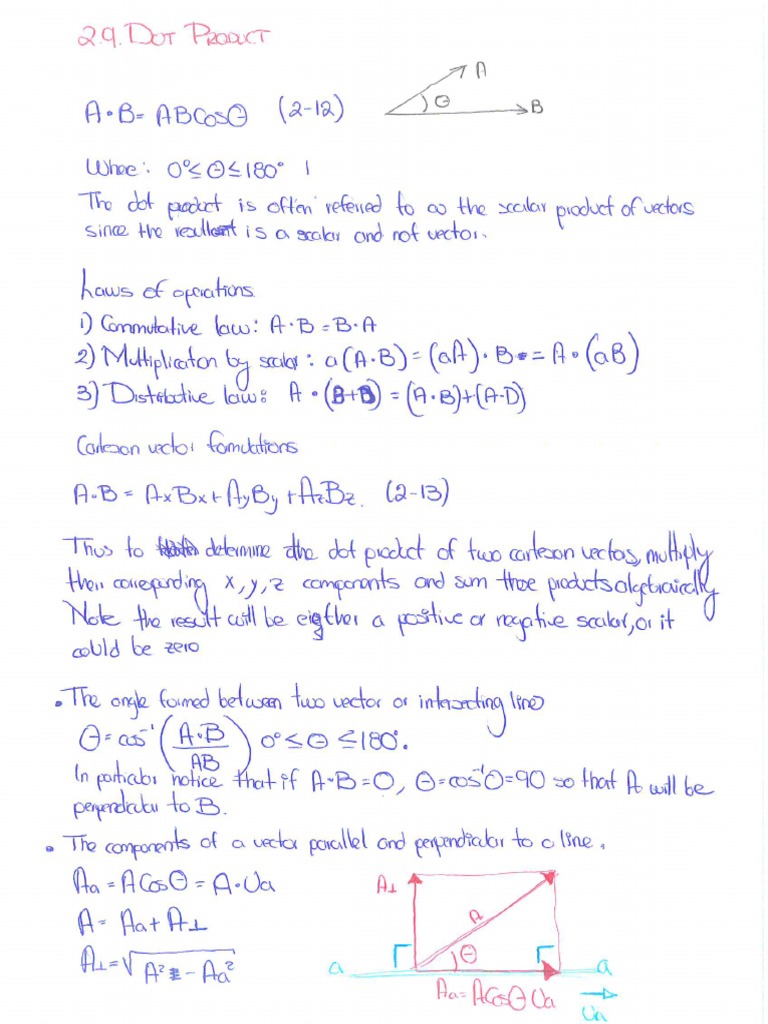 2.9. DOT PRODUCT
A
θ
B
A•B= ABCosθ (2-12)
Where: 0°≤ θ ≤ 180°
The dot product is often referred to as the scalar product of vectors
since the resultant is a scalar and not vector.
Laws of operations
1) Commutative law: A·B = B·A
2) Multiplication by scalar: a(A·B) = (aA)·B = A•(aB)
3) Distributive law: A • (B+D) = (A·B)+(A·D)
Cartesan vector formulations
A·B = AxBx + AyBy + AzBz. (2-13)
Thus to determine the dot product of two cartesan vectors, multiply
their correponding x, y, z components and sum these products algebraically
Note the result will be eigther a positive or negative scalar, or it
could be zero
• The angle formed between two vector or intersecting lines
θ = cos⁻¹ (A·B / AB) 0° ≤ θ ≤ 180°.
In particular notice that if A·B = 0, θ = cos⁻¹0 = 90 so that A will be
perpendicular to B.
• The components of a vector parallel and perpendicular to a line.
Aa = ACosθ = A·Ua
A = Aa + A⊥
A⊥ = √A² - Aa²
A⊥
A
θ
a
a
Aa = ACosθ Ua
Ua